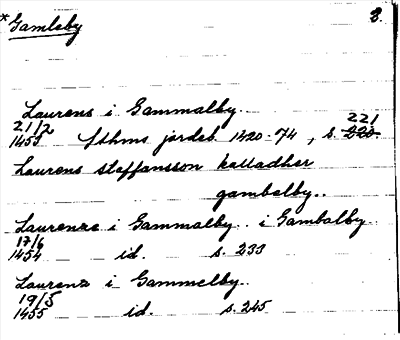 *Gamleby 3.
Laurens i Gammalby.
21/2 221
1453 Sthms jordeb. 1420-74, s. 220
Laurens staffansson kalladher
gambalby..
Laurenze i Gammalby.. i Gambalby
17/6
1454 id. s. 233
Laurens i Gammelby..
19/5
1455 id. s. 245